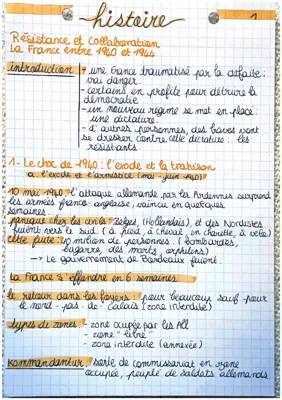 histoire
1
Résistance et Collaboration
La France entre 1940 et 1944
introduction + une France traumatisée par la défaite :
vrai danger.
- certains en profite pour détruire la
démocratie
- un nouveau régime se met en place :
une dictature
- d'autres personnes, des
se dresser contre cette dictature : les
résistants.
1 - Le choc de 1940 : l'exode et la trahison
a. l'exode et l'armistice (mai - juin 1940)
10 mai 1940 : l'attaque allemande par les Ardennes surprend
les armées franco-anglaise, vaincu en quelques
semaines
panique chez les civils : Belges, (Hollandais), et des Nordistes
fuient vers le sud. (à pied, à cheval, en charette, à vélo)
cette fuite : 10 million de personnes. (bombardés,
bagarre, des morts, orphelins)
→ Le gouvernement de Bordeaux fuient.
La France s'effondre en 6 semaines
le retour dans les foyers : pour beaucoup sauf pour
le nord - pas - de - Calais (zone interdite)
types de zones : - zone occupée par les All
- zone "libre"
- zone interdite (annexée)
Kommandantur : sorte de commissariat en zone
occupée, peuplé de soldats allemands.